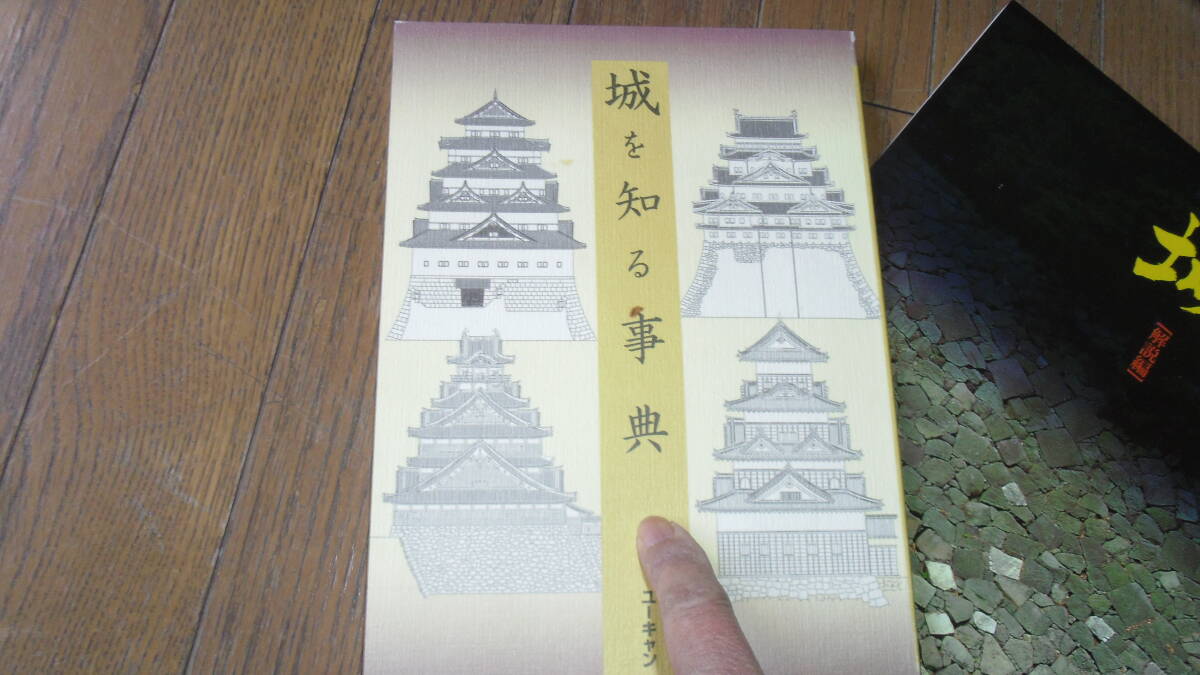 城を知る事典
ユーキャン
[解説編]